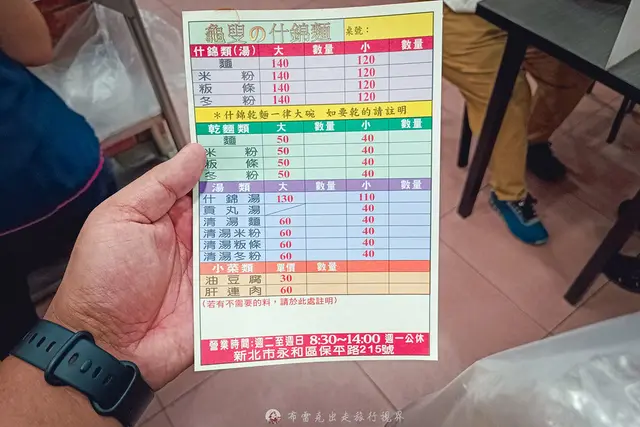 龜叟の什錦麵 桌號：
什錦類(湯) 大 數量 小 數量
麵 140 120
米粉 140 120
粄條 140 120
冬粉 140 120
＊什錦乾麵一律大碗 如要乾的請註明
乾麵類 大 數量 小 數量
麵 50 40
米粉 50 40
粄條 50 40
冬粉 50 40
湯類 大 數量 小 數量
什錦湯 130 110
貢丸湯 40
清湯麵 60 40
清湯米粉 60 40
清湯粄條 60 40
清湯冬粉 60 40
小菜類 單價 數量
油豆腐 30
肝連肉 60
(若有不需要的料，請於此處註明)
營業時間:週二至週日 8:30~14:00 週一公休
新北市永和區保平路215號
布雷克出走旅行視界